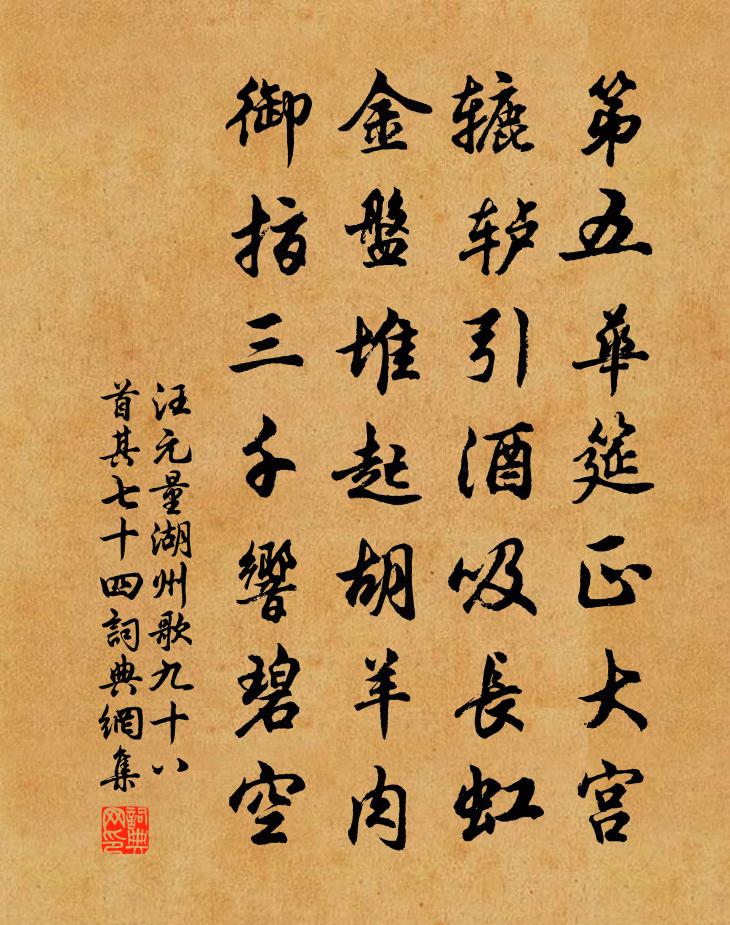 第五華筵正大宫
辘轳引酒吸長虹
金盤堆起胡羊肉
御指三千響碧空
汪元量湖州歌九十八
首其七十四詞典網集
詞典網印